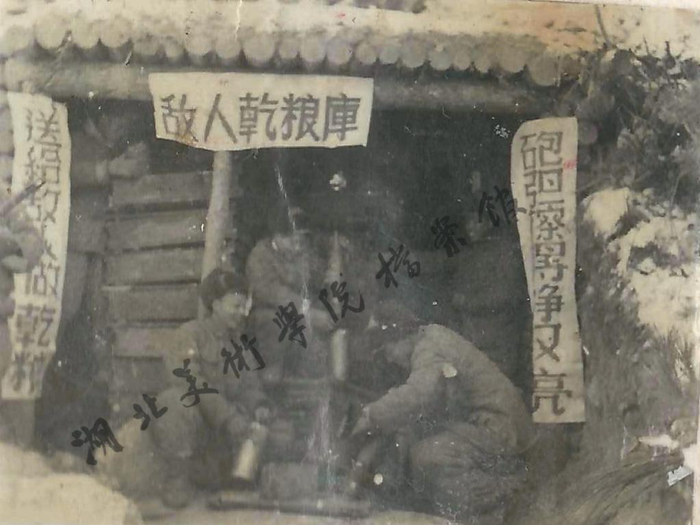 敌人乾粮庫
砲弹擦得净又亮
送给敌人做乾粮
湖北美術學院档案館